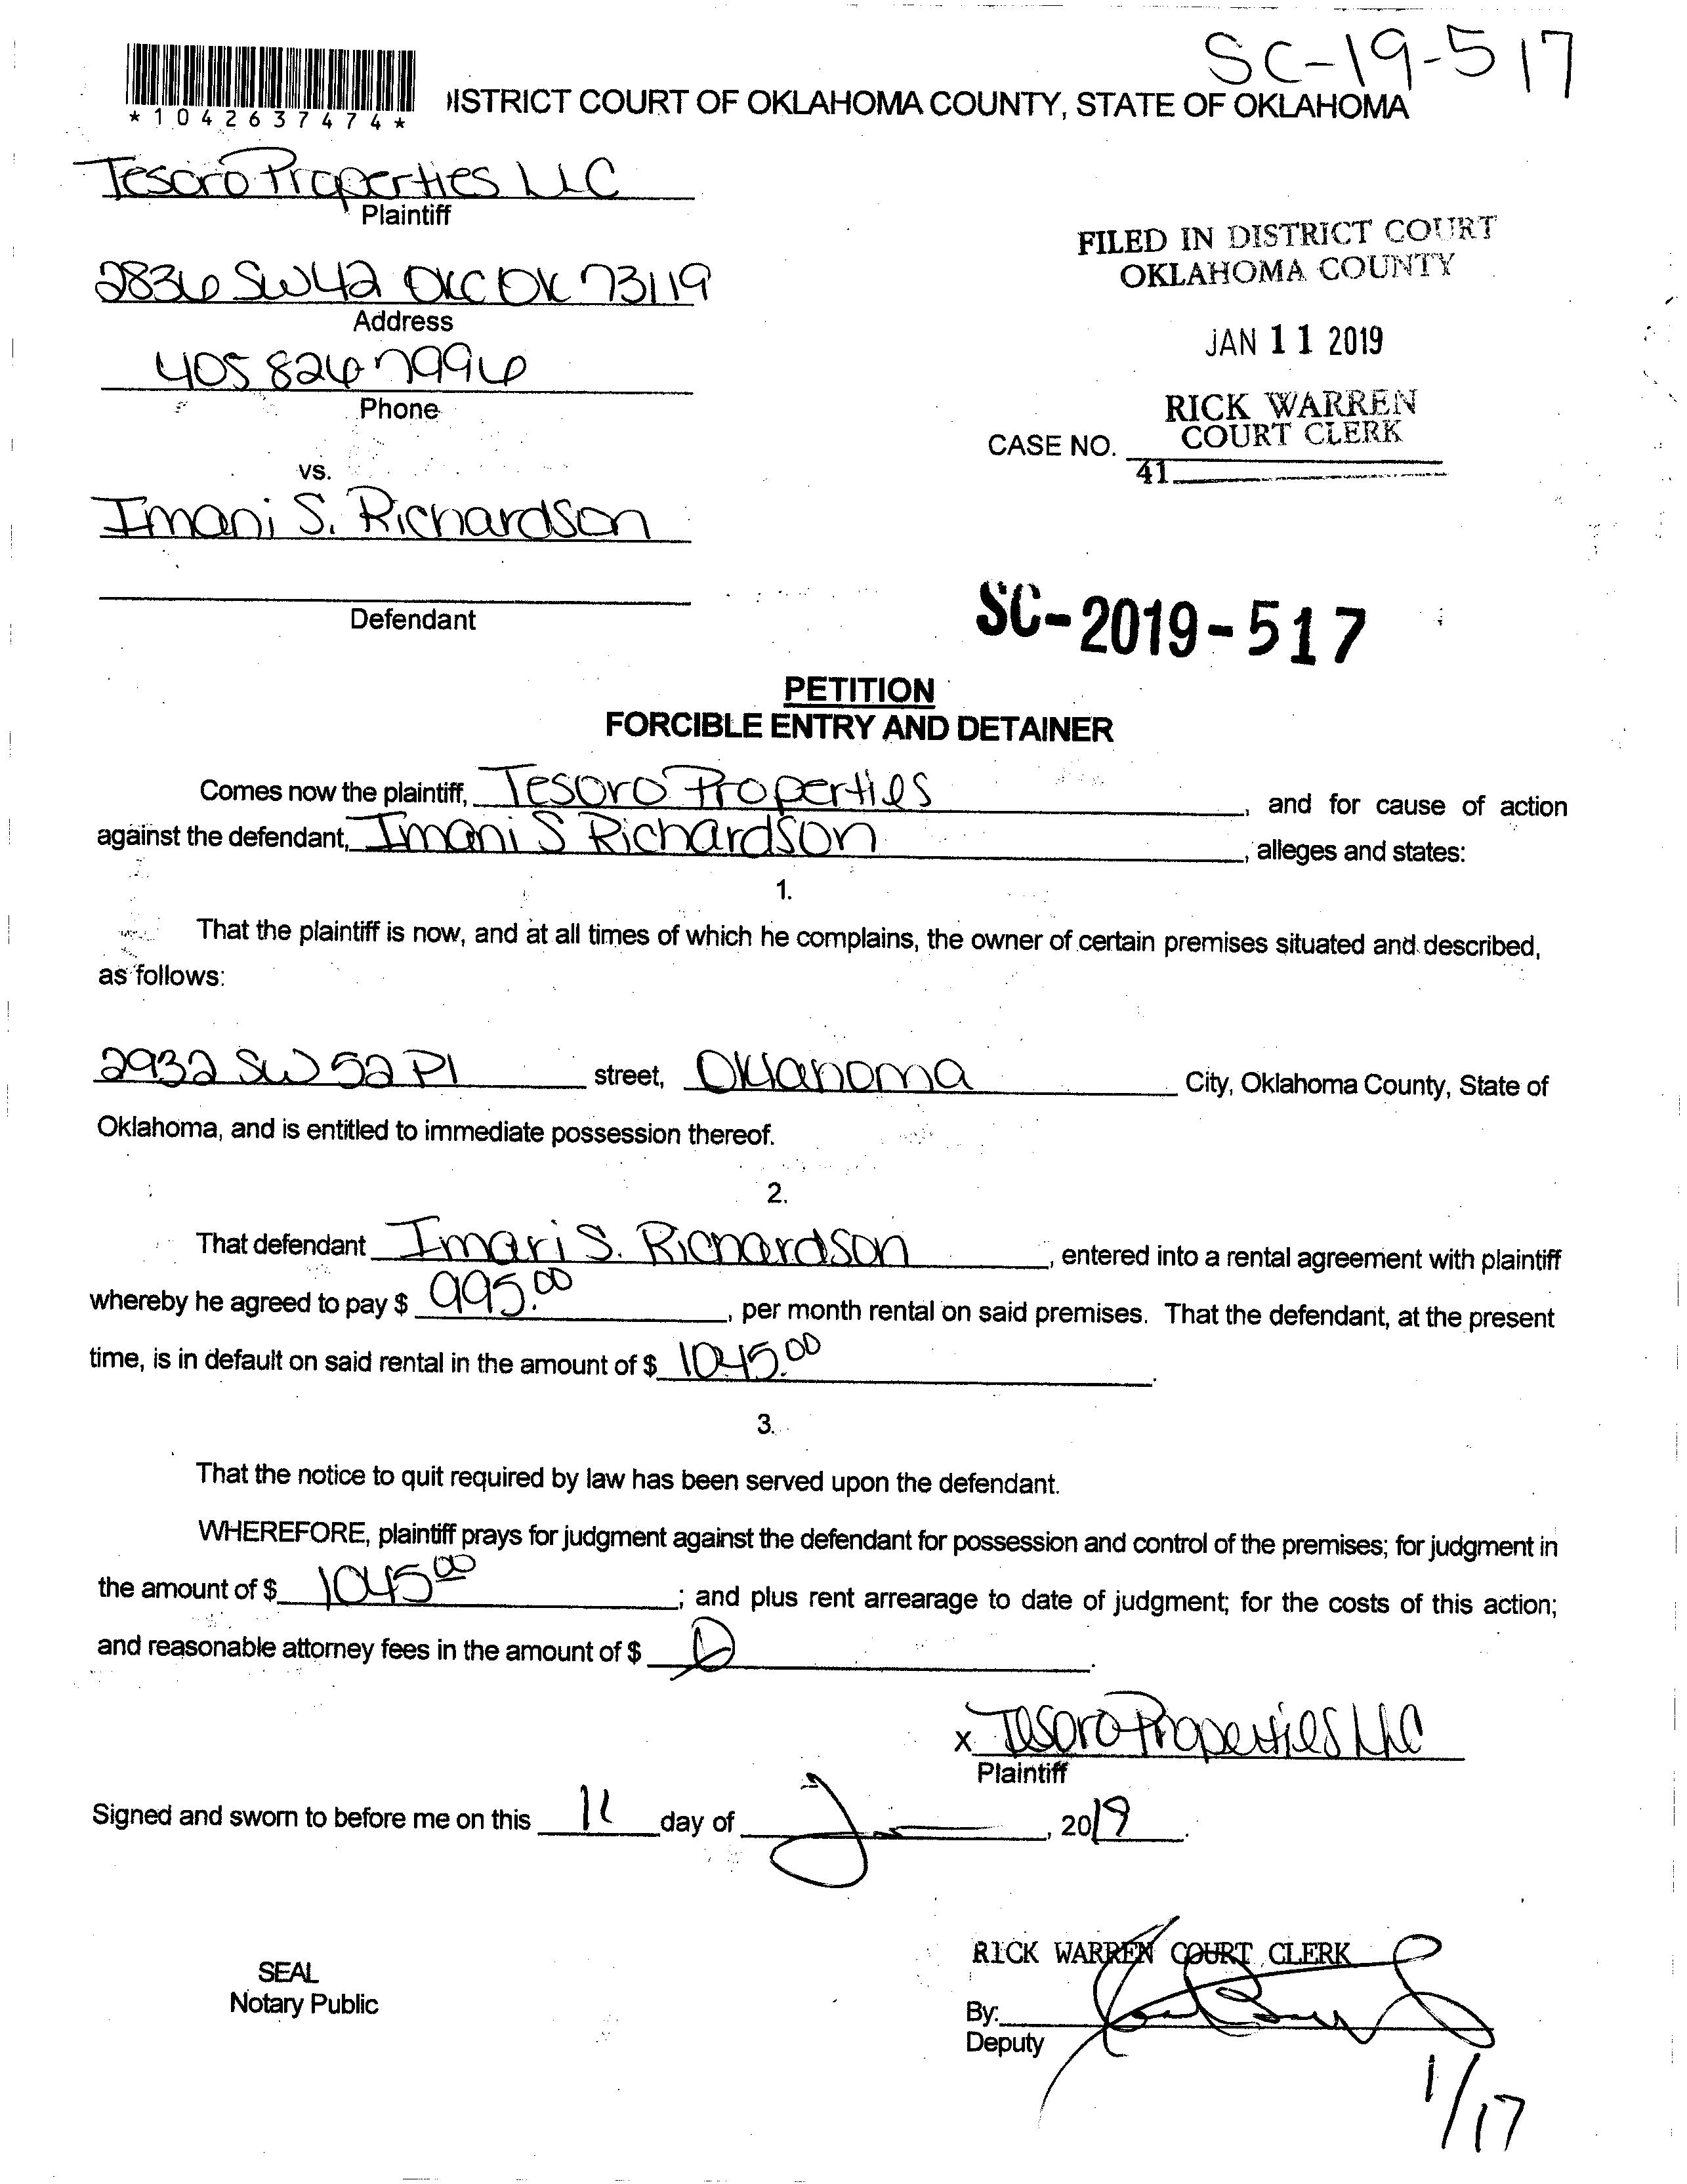 SC-19-517
*1042637474*
ISTRICT COURT OF OKLAHOMA COUNTY, STATE OF OKLAHOMA
Tesoro Properties LLC
Plaintiff
2836 SW 42 OKC OK 73119
Address
405 826 7996
Phone
FILED IN DISTRICT COURT
OKLAHOMA COUNTY
JAN 11 2019
RICK WARREN
COURT CLERK
CASE NO.
41
vs.
Imani S. Richardson
Defendant
SC-2019-517
PETITION
FORCIBLE ENTRY AND DETAINER
Comes now the plaintiff, Tesoro Properties, and for cause of action
against the defendant, Imani S Richardson, alleges and states:
1.
That the plaintiff is now, and at all times of which he complains, the owner of certain premises situated and described,
as follows:
2932 SW 52 Pl street, Oklahoma City, Oklahoma County, State of
Oklahoma, and is entitled to immediate possession thereof.
2.
That defendant Imani S. Richardson, entered into a rental agreement with plaintiff
whereby he agreed to pay $ 995.00, per month rental on said premises. That the defendant, at the present
time, is in default on said rental in the amount of $ 1045.00.
3.
That the notice to quit required by law has been served upon the defendant.
WHEREFORE, plaintiff prays for judgment against the defendant for possession and control of the premises; for judgment in
the amount of $ 1045.00; and plus rent arrearage to date of judgment; for the costs of this action;
and reasonable attorney fees in the amount of $
x Tesoro Properties LLC
Plaintiff
Signed and sworn to before me on this 11 day of , 2019.
SEAL
Notary Public
RICK WARREN COURT CLERK
By:
Deputy
1/17